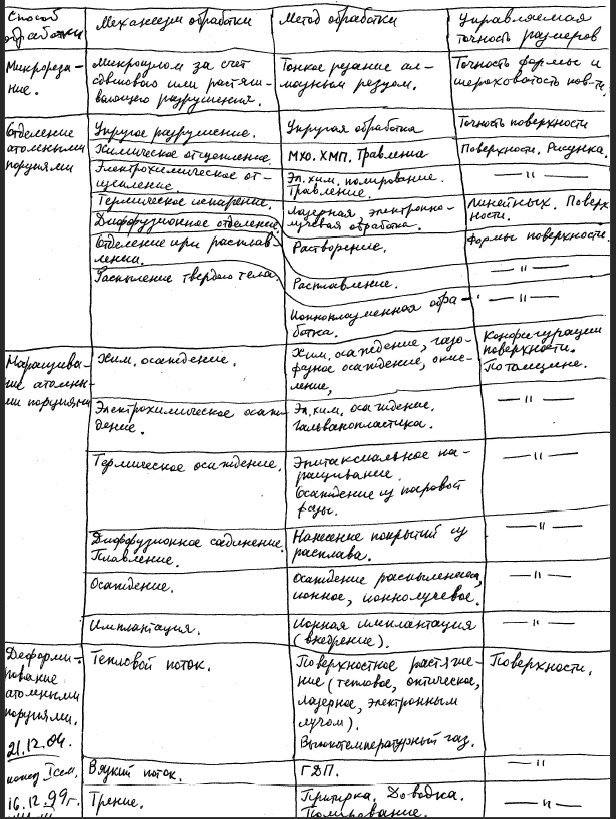 Способ обработки
Механизм обработки
Метод обработки
Управляемая точность размеров
Микрореза-
ние.
Микросколом за счет
сдвигового или растяги-
вающего разрушения.
Тонкое резание ал-
мазным резцом.
Точность формы и
шероховатость пов-ти.
Отделение
атомными
порциями
Упругое разрушение.
Упругая обработка
Точность поверхности
Химическое отщепление.
МХО. ХМП. Травление
Поверхности. Рисунка.
Электрохимическое от-
щепление.
Эл. хим. полирование.
Травление.
— " —
Термическое испарение.
Лазерная, электронно-
лучевая обработка.
Линейных. Поверх-
ности.
Диффузионное отделение
Растворение.
Формы поверхности.
Отделение при расплав-
лении.
Расплавление.
— " —
Распыление твердого тела.
Ионноплазменная обра-
ботка.
— " —
Наращива-
ние атомны-
ми порциями
Хим. осаждение.
Хим. осаждение, газо-
фазное осаждение, окис-
ление,
Конфигурации
поверхности.
По толщине.
Электрохимическое осаж-
дение.
Эл. хим. осаждение.
Гальванопластика.
— " —
Термическое осаждение.
Эпитаксиальное на-
ращивание.
Осаждение из паровой
фазы.
— " —
Диффузионное соединение.
Плавление.
Нанесение покрытий из
расплава.
— " —
Осаждение.
Осаждение распылением,
ионное, ионнолучевое.
— " —
Имплантация.
Ионная имплантация
(внедрение).
— " —
Деформи-
рование
атомными
порциями.
21.12.04.
конец I сем.
16.12.99г.
Тепловой поток.
Поверхностное растяже-
ние (тепловое, оптическое,
лазерное, электронным
лучом).
Высокотемпературный газ.
Поверхности.
Вязкий поток.
ГДП.
— " —
Трение.
Притирка. Доводка.
Полирование.
— " —